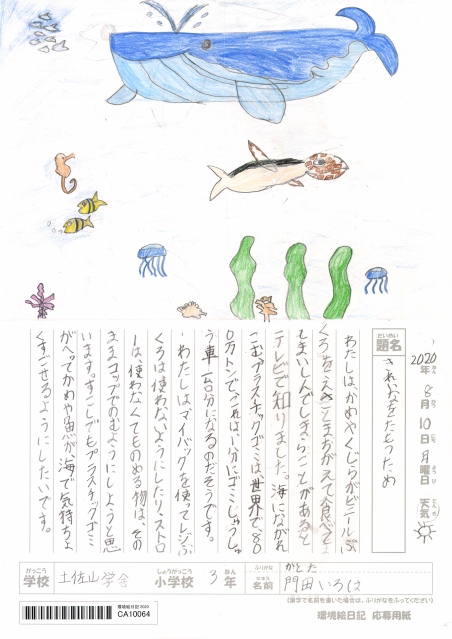 2020年8月10日月曜日 天気
だいめい
題名
たもつため
わたしはかめやくじらがビニールぶ
くろをえさとまちがえて食べて
しまいしんでしまうことがあると
テレビで知りました。海にながれ
こむプラスチックゴミは世界で80
0万トンで、これは1分にゴミしゅうしゅ
う車一台分になるのだそうです。
わたしはマイバッグを使ってレジぶ
くろは使わないようにしたり、ストロ
ーは、使わなくてものめる物は、その
ままコップでのむようにしようと思
います。すこしでもプラスチックゴミ
がへってかめや魚が、海で気持ちよ
くすごせるようにしたいです。
がっこう しょうがっこう ねん
学校 土佐山学舎 小学校 3年
ふりがな かどた
なまえ
名前 門田いろは
(漢字で名前を書いた場合は、ふりがなをふってください)
環境絵日記 2020
CA10064
環境絵日記 応募用紙